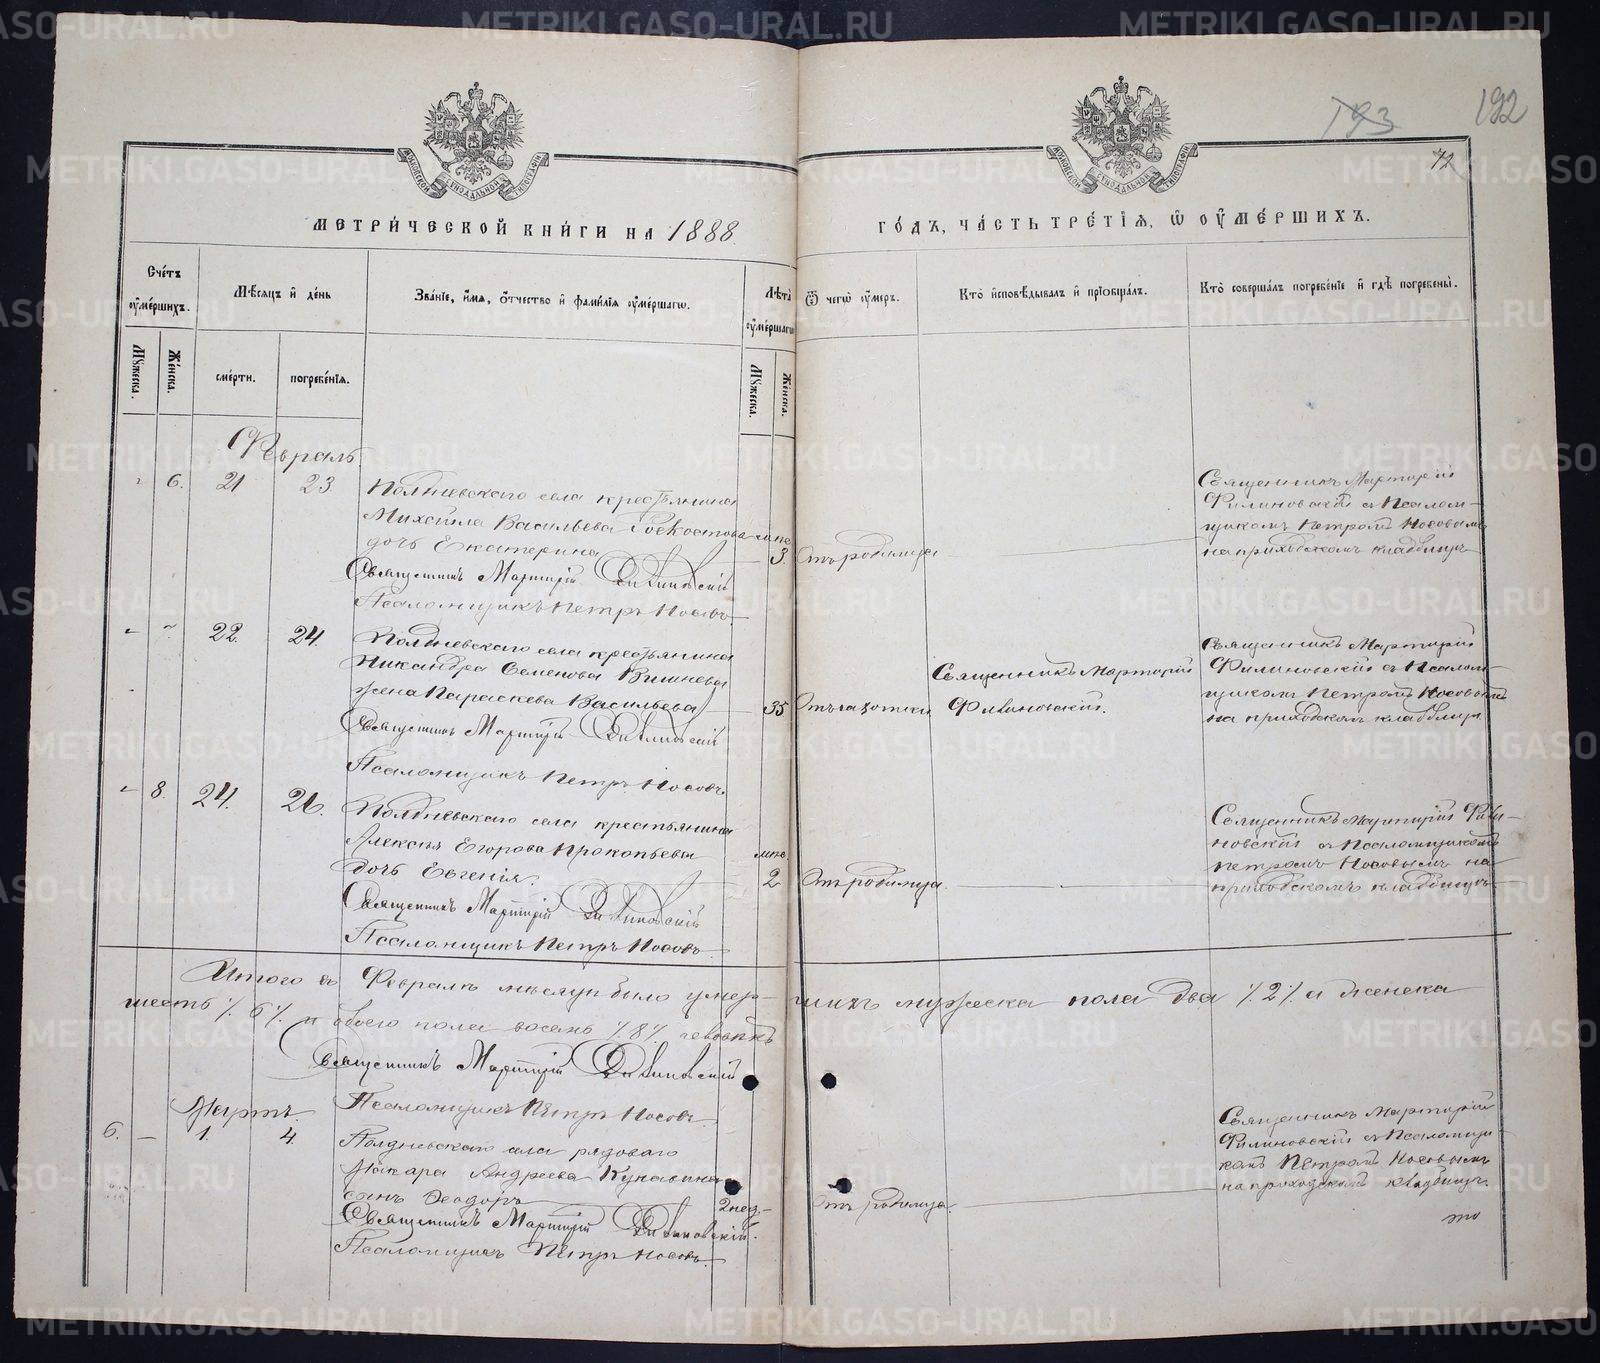 193
192
72
МЕТРИЧЕСКОЙ КНИГИ НА 1888
ГОДЪ, ЧАСТЬ ТРЕТІЯ, Ѡ ОУМЕРШИХЪ.
Счетъ оумершихъ.
Мѣсяцъ и день
Званіе, имя, отчество и фамилія оумершагѡ.
Лѣта оумершагѡ
Ѿ чегѡ оумеръ.
Кто исповѣдывалъ и пріобщалъ.
Кто совершалъ погребеніе и гдѣ погребены.
Мужеска.
Женска.
смерти.
погребенія.
Мужеска.
Женска.
Февраль
6. 21 23.
Полдневскаго села крестьянина
Михаила Васильева
дочь Екатерина
3.
Отъ родимца
Священникъ Мартирій
Филиновскій с Псалом-
щикомъ Петромъ Носовымъ
на приходскомъ кладбищѣ
Священникъ Мартирій Филиновскій
Псаломщикъ Петръ Носовъ.
22. 24.
Полдневскаго села крестьянина
Никандра Семенова Вишнева
жена Параскева Васильева
35
Отъ чахотки
Священникъ Мартирій
Филиновскій.
Священникъ Мартирій
Филиновскій с Псалом-
щикомъ Петромъ Носовымъ
на приходскомъ кладбищѣ
Священникъ Мартирій Филиновскій
Псаломщикъ Петръ Носовъ.
8. 24. 26.
Полдневскаго села крестьянина
Алексѣя Егорова Прокопьева
дочь Евгенія.
мѣс.
2
Отъ родимца.
Священникъ Мартирій Фили-
новскій с Псаломщикомъ
Петромъ Носовымъ на
приходскомъ кладбищѣ
Священникъ Мартирій Филиновскій
Псаломщикъ Петръ Носовъ
Итого въ Февралѣ мѣсяцѣ было умер-
шихъ мужеска пола два /.2/. а женска
шесть /.6/. и обоего пола восемь /.8/. человѣкъ
Священникъ Мартирій Филиновскій
Псаломщикъ Петръ Носовъ.
Мартъ.
6. 1. 4.
Полдневскаго села рядоваго
Макара Андреева
сынъ Ѳеодоръ
2 нед.
Отъ родимца.
Священникъ Мартирій
Филиновскій с Псаломщи
комъ Петромъ Носовымъ
на приходскомъ кладбищѣ.
Священникъ Мартирій Филиновскій.
Псаломщикъ Петръ Носовъ.
METRIKI.GASO-URAL.RU